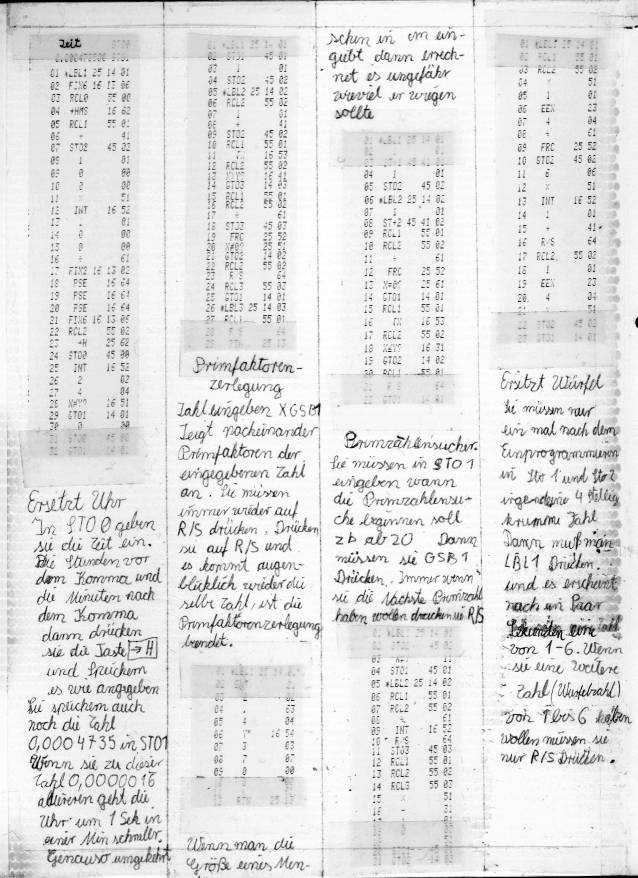 Zeit
01 *LBL1 25 14 01
02 FIX6 16 13 06
03 RCL0 55 00
04 →HMS 16 62
05 RCL1 55 01
06 + 41
07 STO2 45 02
08 1 01
09 0 00
10 0 00
11 × 51
12 INT 16 52
13 1 01
14 0 00
15 0 00
16 ÷ 61
17 FIX2 16 13 02
18 PSE 16 64
19 PSE 16 64
20 PSE 16 64
21 FIX6 16 13 06
22 RCL2 55 02
23 →H 25 62
24 STO0 45 00
25 INT 16 52
26 2 02
27 4 04
28 X≠Y? 16 51
29 GTO1 14 01
30 0 00
Ersetzt Uhr
In STO 0 geben
sie die Zeit ein.
Die Stunden vor
dem Komma und
die Minuten nach
dem Komma
dann drücken
sie die Taste →H
und Speichern
es wie angegeben
Sie speichern auch
noch die Zahl
0,0004735 in STO1
Wenn sie zu dieser
Zahl 0,0000016
addieren geht die
Uhr um 1 Sek in
einer Min schneller.
Genauso umgekehrt
01 *LBL1 25 14 01
02 STO1 45 01
04 STO2 45 02
05 *LBL2 25 14 02
06 RCL2 55 02
07 1 01
08 + 41
09 STO2 45 02
10 RCL1 55 01
11 √X 16 53
12 RCL2 55 02
14 GTO3 14 03
15 RCL1 55 01
16 RCL2 55 02
17 ÷ 61
18 STO3 45 03
19 FRC 25 52
21 GTO2 14 02
22 RCL2 55 02
23 R/S 64
24 RCL3 55 03
25 GTO1 14 01
26 *LBL3 25 14 03
27 RCL1 55 01
Primfaktoren-
zerlegung
Zahl eingeben X GSB1
Zeigt nacheinander
Primfaktoren der
eingegebenen Zahl
an. Sie müssen
immer wieder auf
R/S drücken. Drücken
sie auf R/S und
es kommt augen-
blicklich wieder die
selbe Zahl, ist die
Primfaktorenzerlegung
beendet.
05 4 04
06 Yˣ 16 54
07 3 03
08 7 07
09 0 00
Wenn man die
Größe eines Men-
schen in cm ein-
gibt dann errech-
net es ungefähr
wieviel er wiegen
sollte
01 *LBL1 25 14 01
04 1 01
05 STO2 45 02
06 *LBL2 25 14 02
07 1 01
08 ST+2 45 41 02
09 RCL1 55 01
10 RCL2 55 02
11 ÷ 61
12 FRC 25 52
13 X=0? 25 61
14 GTO1 14 01
15 RCL1 55 01
16 √X 16 53
17 RCL2 55 02
19 GTO2 14 02
20 RCL1 55 01
Primzahlensucher.
Sie müssen in STO 1
eingeben wann
die Primzahlensu-
che beginnen soll
zb ab 20 Dann
müssen sie GSB 1
Drücken. Immer wenn
sie die Nächste Primzahl
haben wollen drücken sie R/S
04 STO1 45 01
05 *LBL2 25 14 02
06 RCL1 55 01
07 RCL2 55 02
08 ÷ 61
09 INT 16 52
10 R/S 64
11 STO3 45 03
12 RCL1 55 01
13 RCL2 55 02
14 RCL3 55 03
15 × 51
01 *LBL1 25 14 01
03 RCL2 55 02
04 × 51
05 1 01
06 EEX 23
07 4 04
08 ÷ 61
09 FRC 25 52
10 STO2 45 02
11 6 06
12 × 51
13 INT 16 52
14 1 01
15 + 41
16 R/S 64
17 RCL2 55 02
18 1 01
19 EEX 23
20 4 04
21 × 51
22 STO2 45 02
Ersetzt Würfel
Sie müssen nur
ein mal nach dem
Einprogrammieren
in Sto 1 und Sto 2
irgendeine 4 stellig
krumme Zahl
Dann muß man
LBL1 Drücken.
und es erscheint
nach ein Paar
Sekunden eine Zahl
von 1-6. Wenn
sie eine weitere
Zahl (Würfelzahl)
von 1 bis 6 haben
wollen müssen sie
nur R/S Drücken.